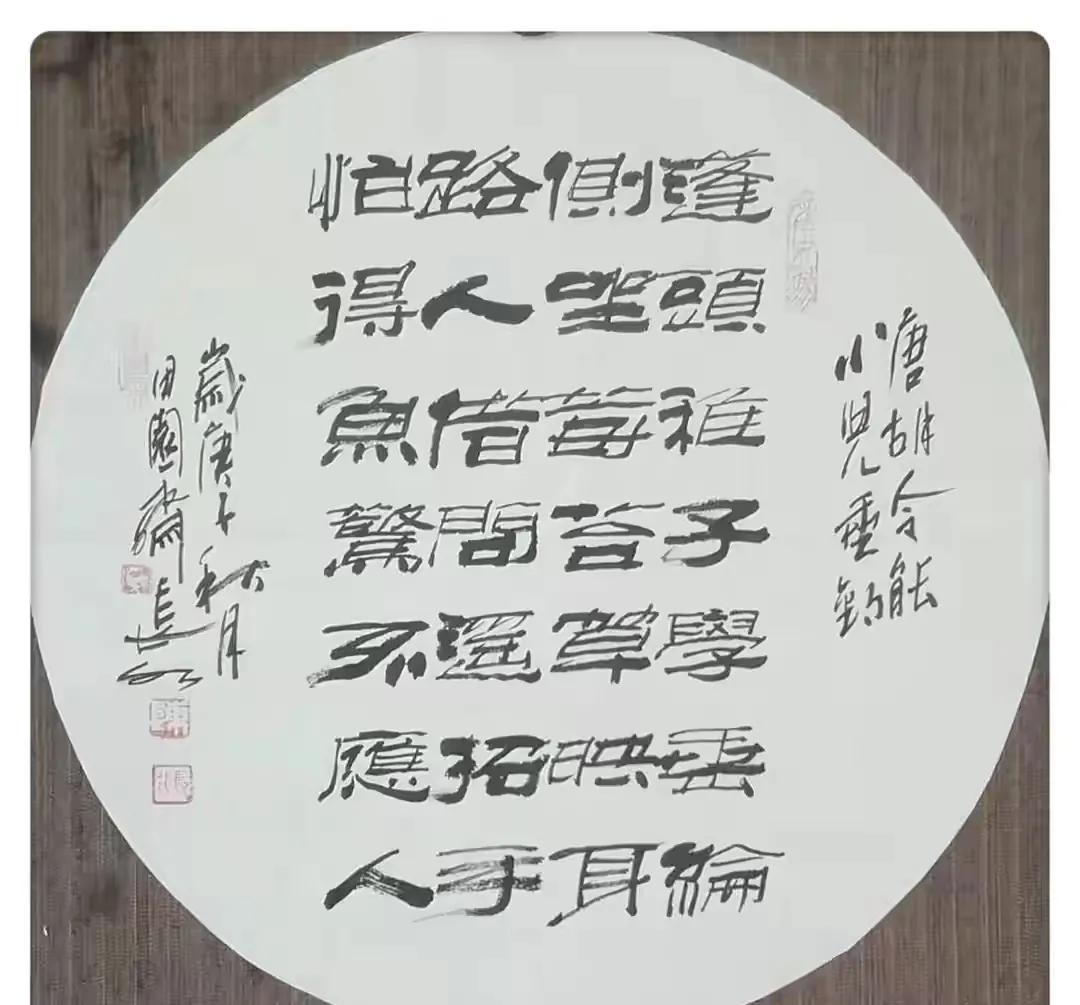 唐胡令能
小兒垂釣
蓬頭稚子學垂綸
側坐莓苔草映身
路人借問遙招手
怕得魚驚不應人
歲庚子秋月
田園齋長